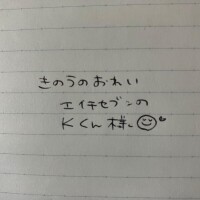 きのうのおれい
エイチセブンの
Kくん様